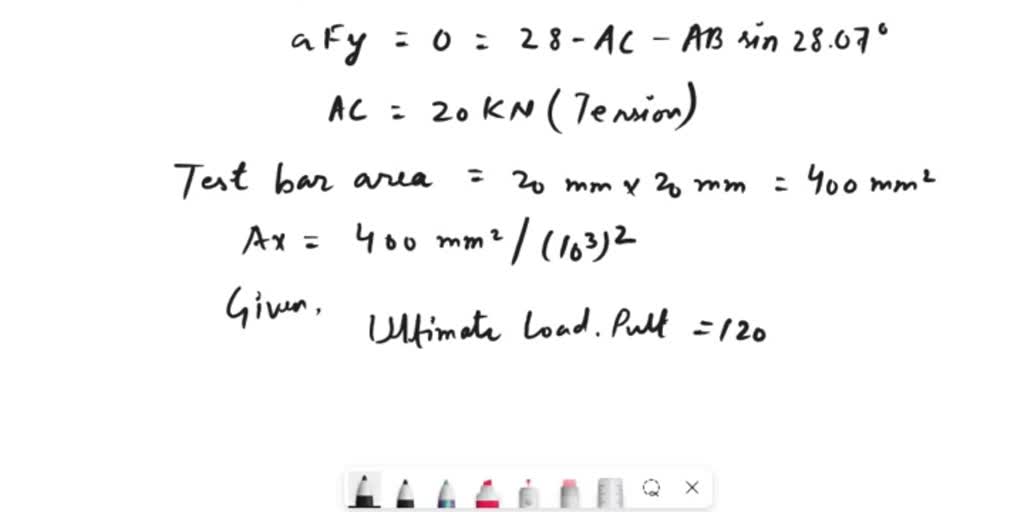 aFy = 0 = 28 - AC - AB sin 28.07°
AC = 20 KN (Tension)
Test bar area = 20 mm x 20 mm = 400 mm²
Ax = 400 mm² / (10³)²
Given,
Ultimate Load. Pult = 120